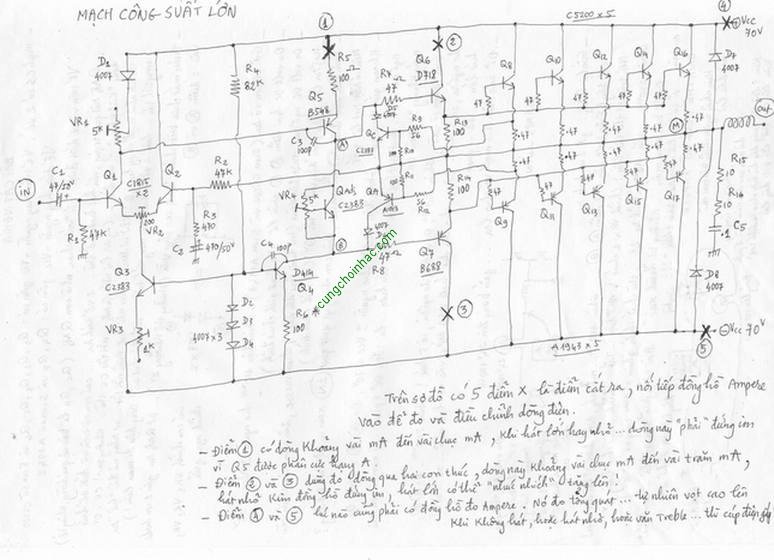 MẠCH CÔNG SUẤT LỚN
C5200 x 5
① ② ④
⊕Vcc
70V
D1
4007
R4
82K
R5
100
Q5
B548
Q6
D718
R7
47
Q8
Q10
Q12
Q14
Q16
D7
4007
VR1
5K
C3
100P
D5
4007
QC
C2383
R9
56
R13
100
47
47
47
47
47
.47
.47
.47
.47
.47
Ⓐ
Ⓜ
Out
IN
C1
47/50V
Q1
C1815
x2
Q2
R2
47K
R1
47K
100
VR2
R3
470
C2
470/50V
VR4
5K
QAdj
C2383
QA
A1013
R10
R11
56
R12
R14
100
.47
.47
.47
.47
.47
47
47
47
47
47
Q9
Q11
Q13
Q15
Q17
R15
10
R16
10
C5
.1
Ⓑ
Q3
C2383
C4
100P
D414
Q4
47
R8
Q7
B688
D8
4007
VR3
1K
D2
D3
D4
4007x3
R6
100
cungchoinhac.com
③
⑤
⊖Vcc 70V
A1943 x 5
Trên sơ đồ có 5 điểm X là điểm cắt ra, nối tiếp đồng hồ Ampere
vào để đo và điều chỉnh dòng điện.
- Điểm ① có dòng khoảng vài mA đến vài chục mA, khi hát lớn hay nhỏ... dòng này "phải" đứng im
vì Q5 được phân cực hạng A.
- Điểm ② và ③ dùng đo dòng qua hai con thúc, dòng này khoảng vài chục mA đến vài trăm mA,
hát nhỏ kim đồng hồ đứng im, hát lớn có thể "nhúc nhích" tăng lên!
- Điểm ④ và ⑤ lúc nào cũng phải có đồng hồ đo Ampere. Nó đo tổng quát... tự nhiên vọt cao lên
khi không hát, hoặc hát nhỏ, hoặc vặn Treble... thì cúp điện